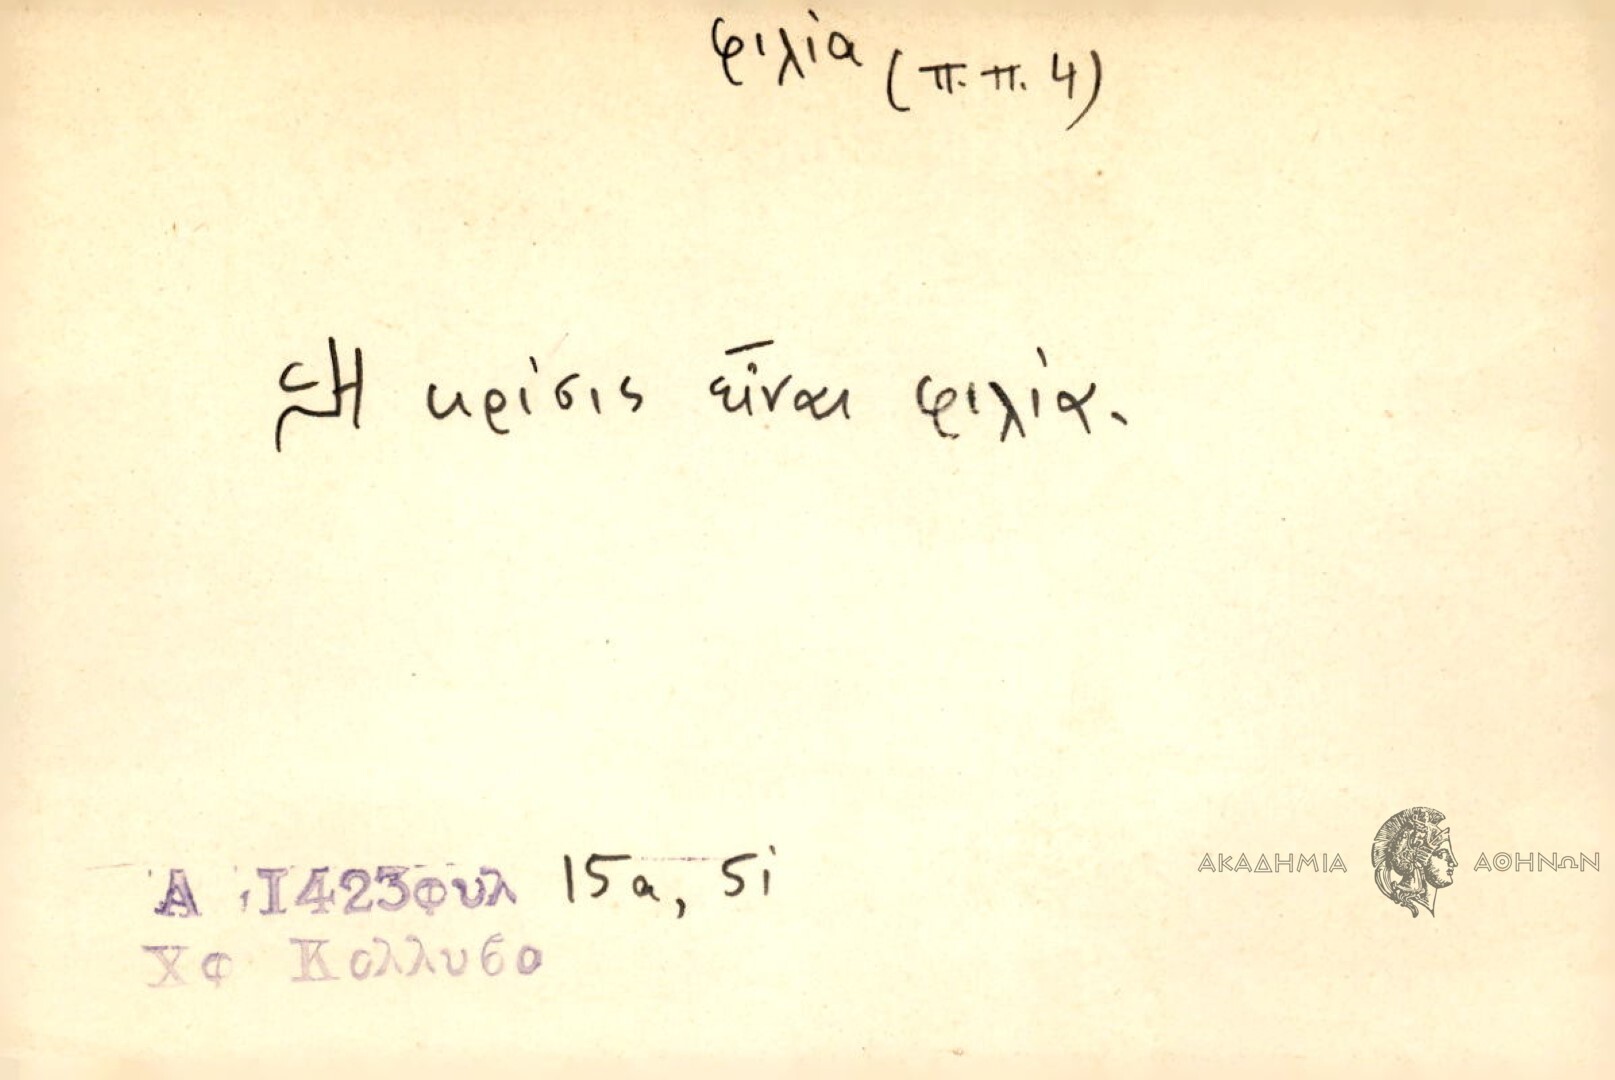 φιλία (π.π. 4)
Ἡ κρίσις εἶναι φιλία.
Α 1423φυλ 15α, 51
Χφ Κολλυβο
ΑΚΑΔΗΜΙΑ ΑΘΗΝΩΝ